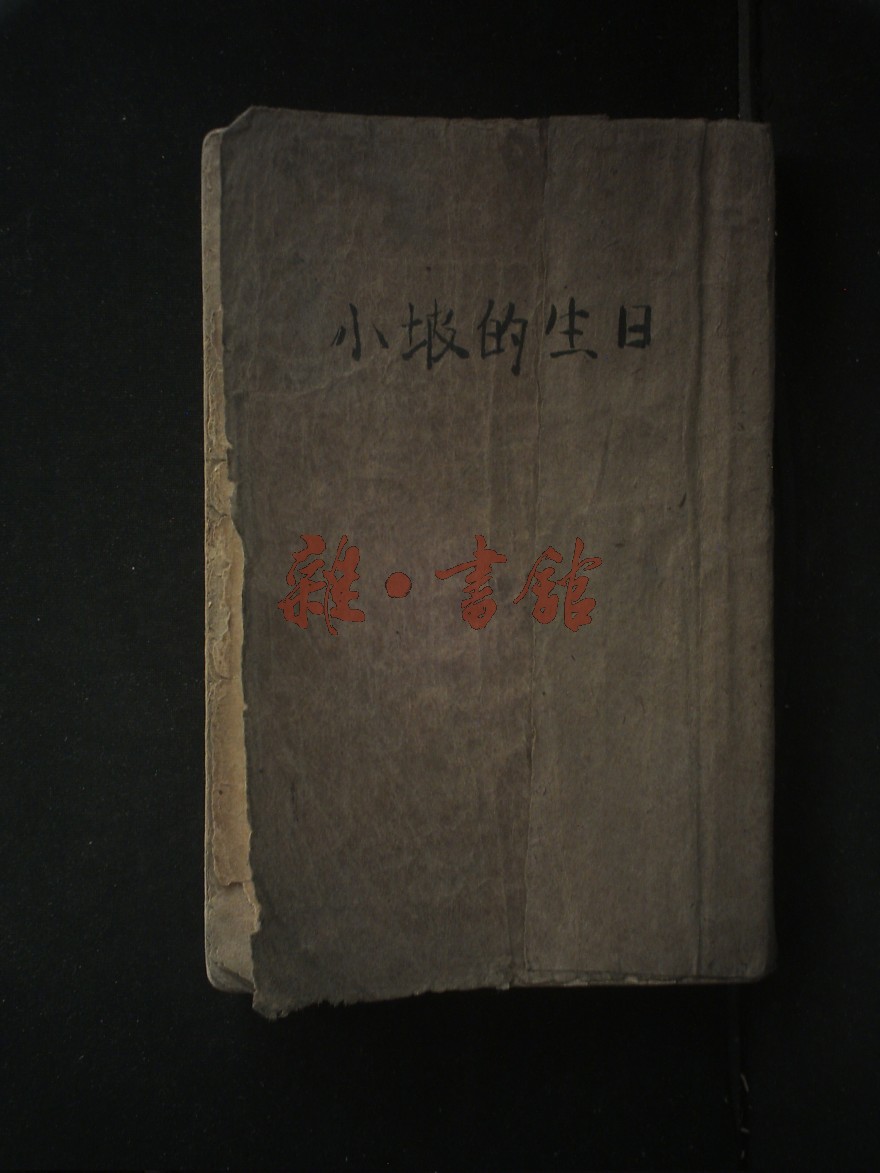 小坡的生日
雜·書館